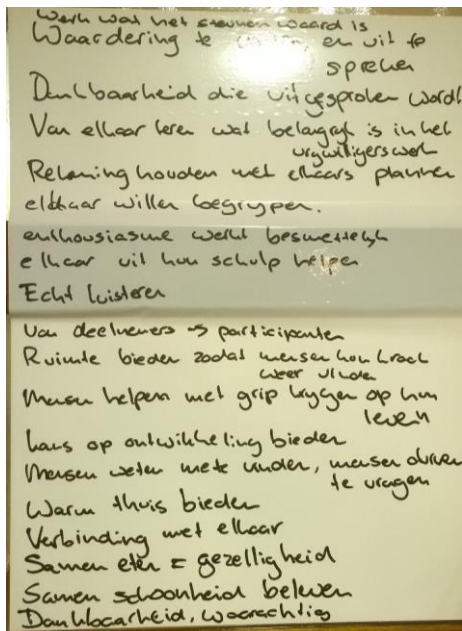 Werk wat het steunen waard is
Waardering te en uit te
spreken
Dankbaarheid die uitgesproken wordt
Van elkaar leren wat belagrijk is in het
vrijwilligerswerk
Rekening houden met elkaars plannen
elkaar willen begrijpen.
enthousiasme werkt besmettelijk
elkaar uit hun schulp helpen
Echt luisteren
Van deelnemers → participanten
Ruimte bieden zodat mensen hun kracht
weer vinden
Mensen helpen met grip krijgen op hun
leven
kans op ontwikkeling bieden
Mensen weten me te vinden, mensen durven
te vragen
Warm thuis bieden
Verbinding met elkaar
Samen eten = gezelligheid
Samen schoonheid beleven
Dankbaarheid, waarachtig